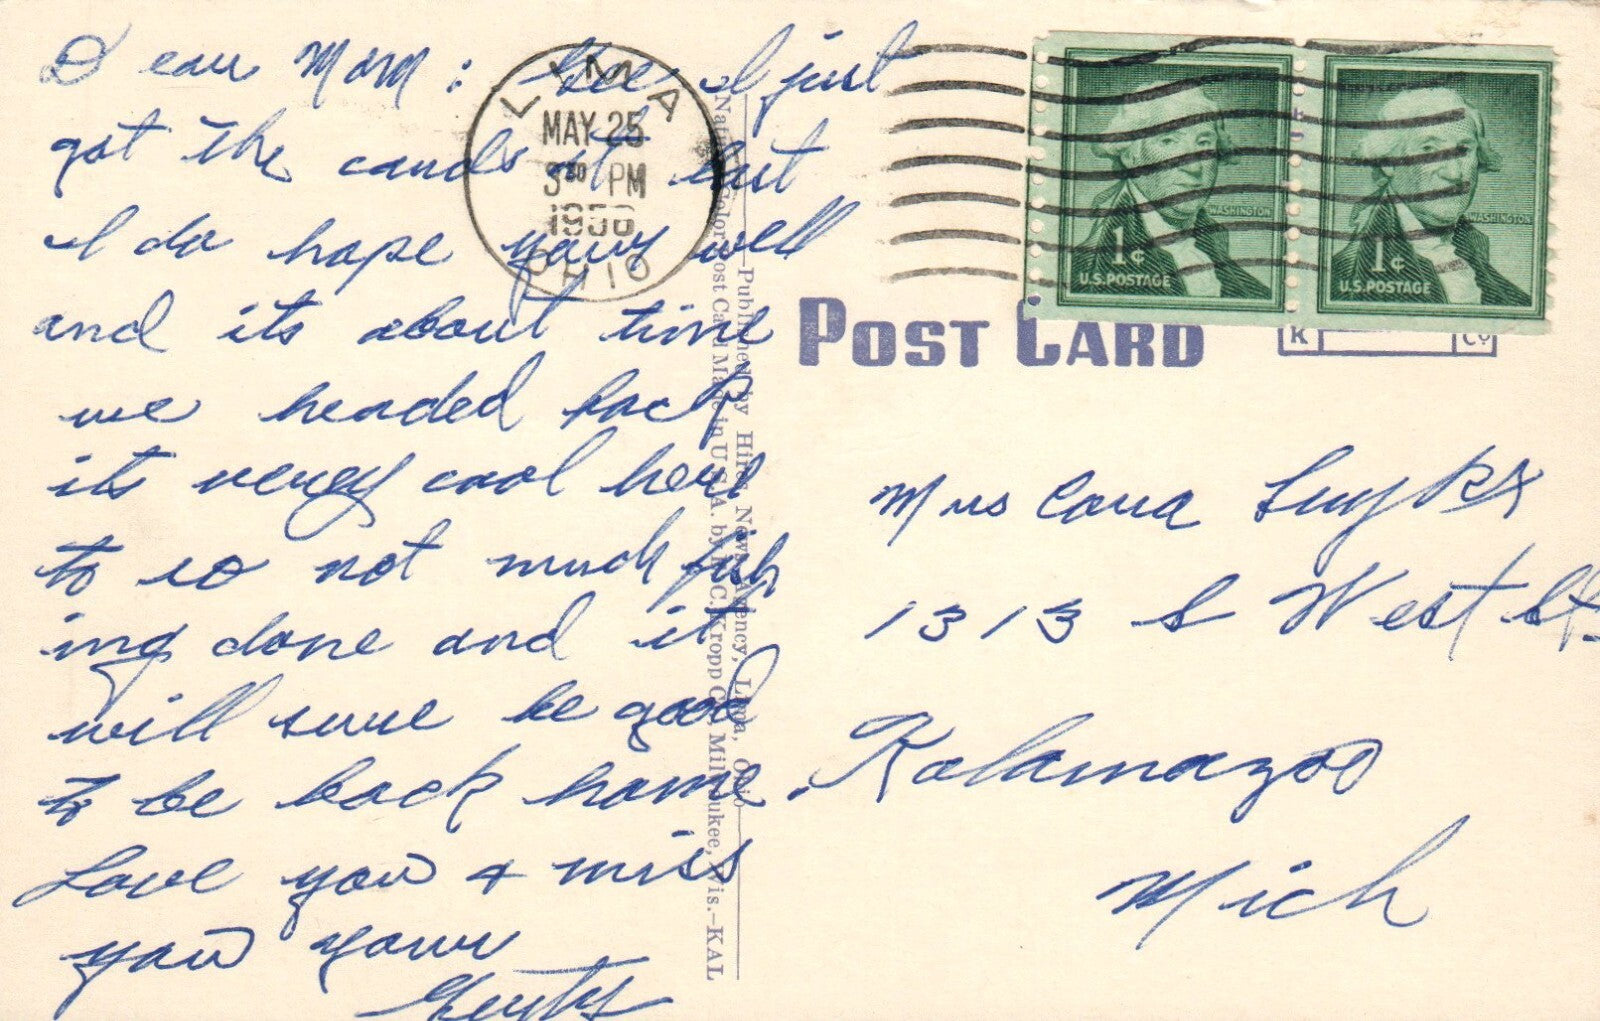 Dear Mom: Gee I just
got the cards at last
I do hope your well
and its about time
we headed back
its verey cool here
to so not much fish
ing done and it
will sure be good
to be back home.
Love you & miss
you your
LIMA
MAY 25
3 30 PM
1956
OHIO
1¢
U.S. POSTAGE
WASHINGTON
1¢
U.S. POSTAGE
WASHINGTON
POST CARD
K Co
Mrs Cora
1313 S West St.
Kalamazoo
Mich
—Published by Hires News Agency, Lima, Ohio—
Natural Color Post Card Made in U.S.A. by E. C. Kropp Co., Milwaukee, Wis.—KAL